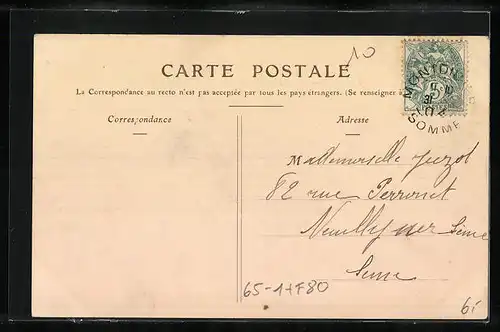 10
CARTE POSTALE
La Correspondance au recto n'est pas acceptée par tous les pays étrangers. (Se renseigner
Correspondance
Adresse
SOMME
Mademoiselle
82 rue Perronet
Neuilly sur Seine
Seine
65-1+F80